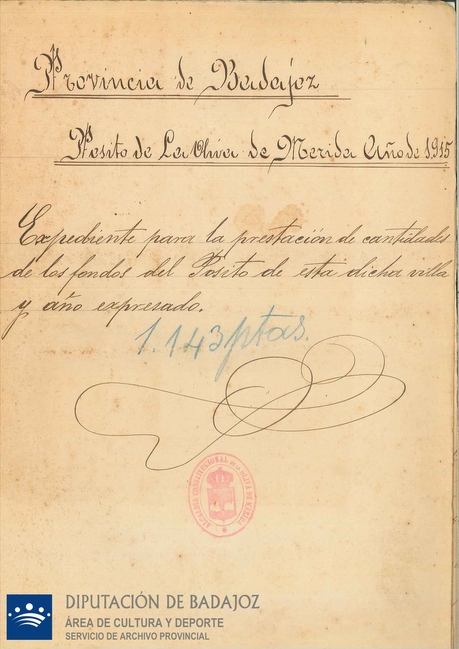 Provincia de Badajoz
Posito de La Oliva de Merida Año de 1.915
Expediente para la prestación de cantidades
de los fondos del Posito de esta dicha villa
y año expresado.
1.143 ptas.
ALCALDIA CONSTITUCIONAL DE LA OLIVA DE MERIDA
DIPUTACIÓN DE BADAJOZ
ÁREA DE CULTURA Y DEPORTE
SERVICIO DE ARCHIVO PROVINCIAL